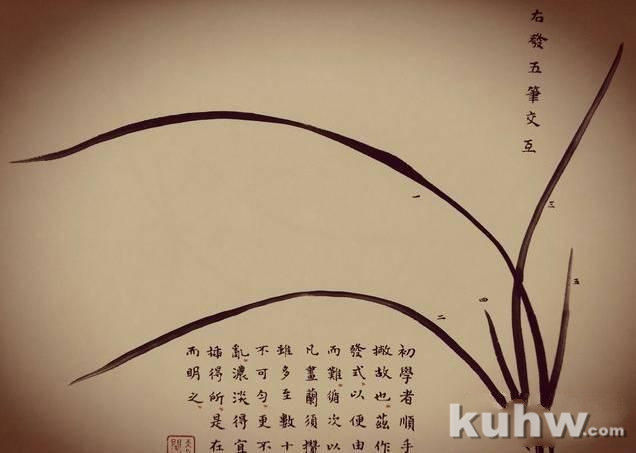 右發五筆交互
三
一
五
四
二
初學者順手
撇故也茲作
發式以便由
而難循次以
凡畫蘭須攢
雖多至數十
不可勻更不
亂濃淡得宜
插得所是在
而明之
kuhw.com